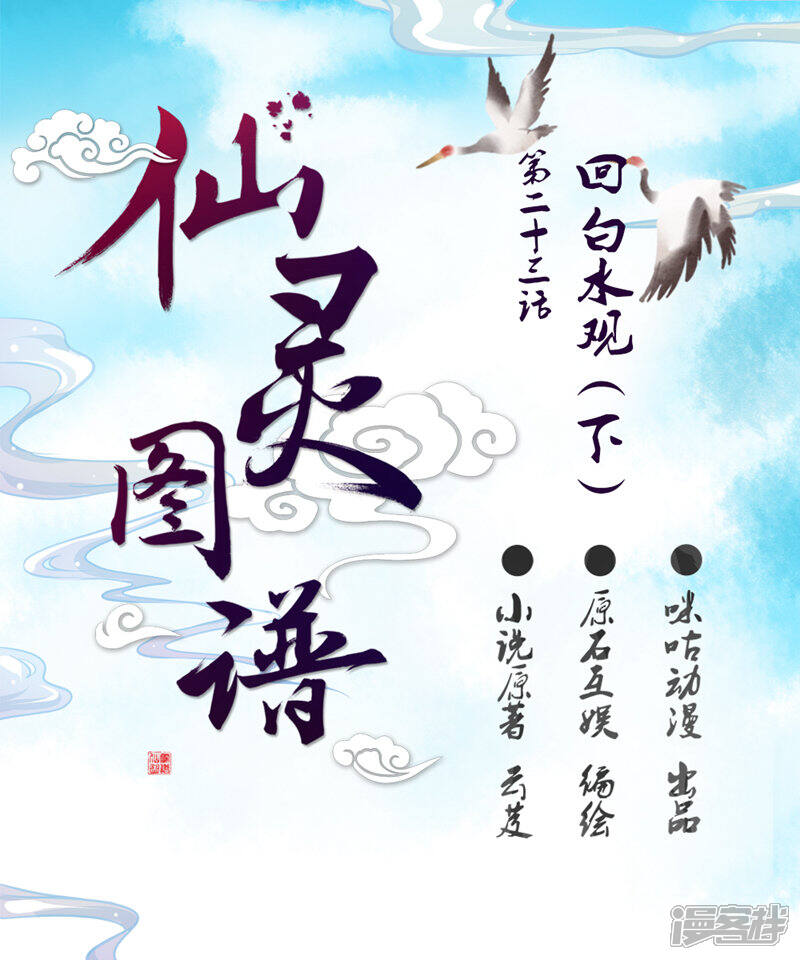 仙灵图谱
回白水观（下）
第二十三话
咪咕动漫 出品
原石互娱 编绘
小说原著 云芨
漫客栈